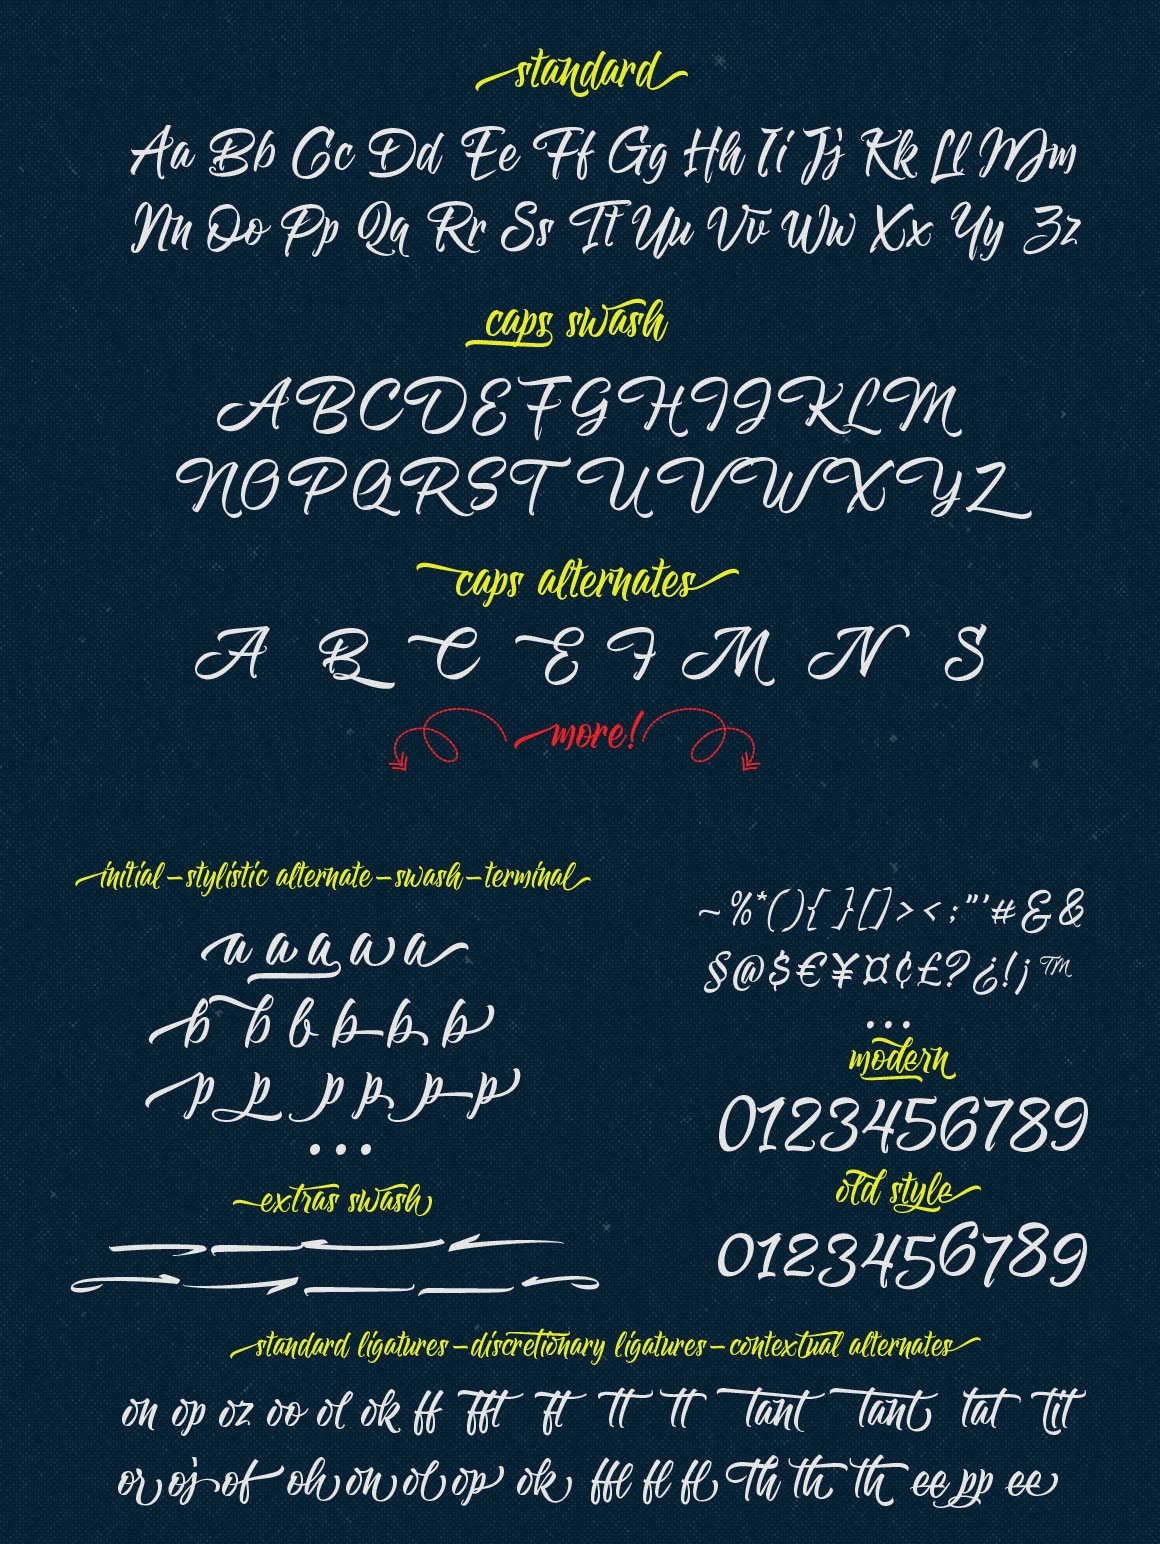 standard
Aa Bb Cc Dd Ee Ff Gg Hh Ii Jj Kk Ll Mm
Nn Oo Pp Qq Rr Ss Tt Uu Vv Ww Xx Yy Zz
caps swash
A B C D E F G H I J K L M
N O P Q R S T U V W X Y Z
caps alternates
A B C E F M N S
more!
initial – stylistic alternate – swash – terminal
a a a a a
b b b b b b
p p p p p p
...
extras swash
~ % * ( ) { } [ ] > < ; " ' ' # & &
§ @ $ € ¥ ¤ ¢ £ ? ¿ ! ¡ ™
...
modern
0123456789
old style
0123456789
standard ligatures – discretionary ligatures – contextual alternates
on op oz oo ol ok ff fft ft tt tt tant tant tat tit
or oj of oh on ol op ok ffl fl fl Th th th ee pp ee